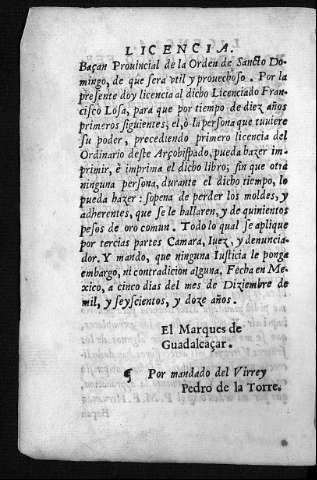 LICENCIA.
Baçan Prouincial de la Orden de Sancto Do-
mingo, de que sera vtil y prouechoso. Por la
presente doy licencia al dicho Licenciado Fran-
cisco Losa, para que por tiempo de diez años
primeros siguientes; el, ò la persona que tuuiere
su poder, precediendo primero licencia del
Ordinario deste Arçobispado, pueda hazer im-
primir, è imprima el dicho libro; sin que otra
ninguna persona, durante el dicho tiempo, lo
pueda hazer: sopena de perder los moldes, y
adherentes, que se le hallaren, y de quinientos
pesos de oro comun. Todo lo qual se aplique
por tercias partes Camara, Iuez, y denuncia-
dor. Y mando, que ninguna Iusticia le ponga
embargo, ni contradicion alguna. Fecha en Me-
xico, a cinco dias del mes de Diziembre de
mil, y seyscientos, y doze años.
El Marques de
Guadalcaçar.
¶ Por mandado del Virrey
Pedro de la Torre.